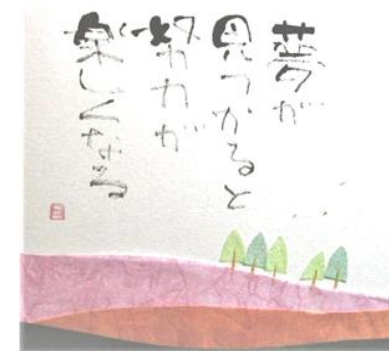 夢が
見つかると
努力が
楽しくなる